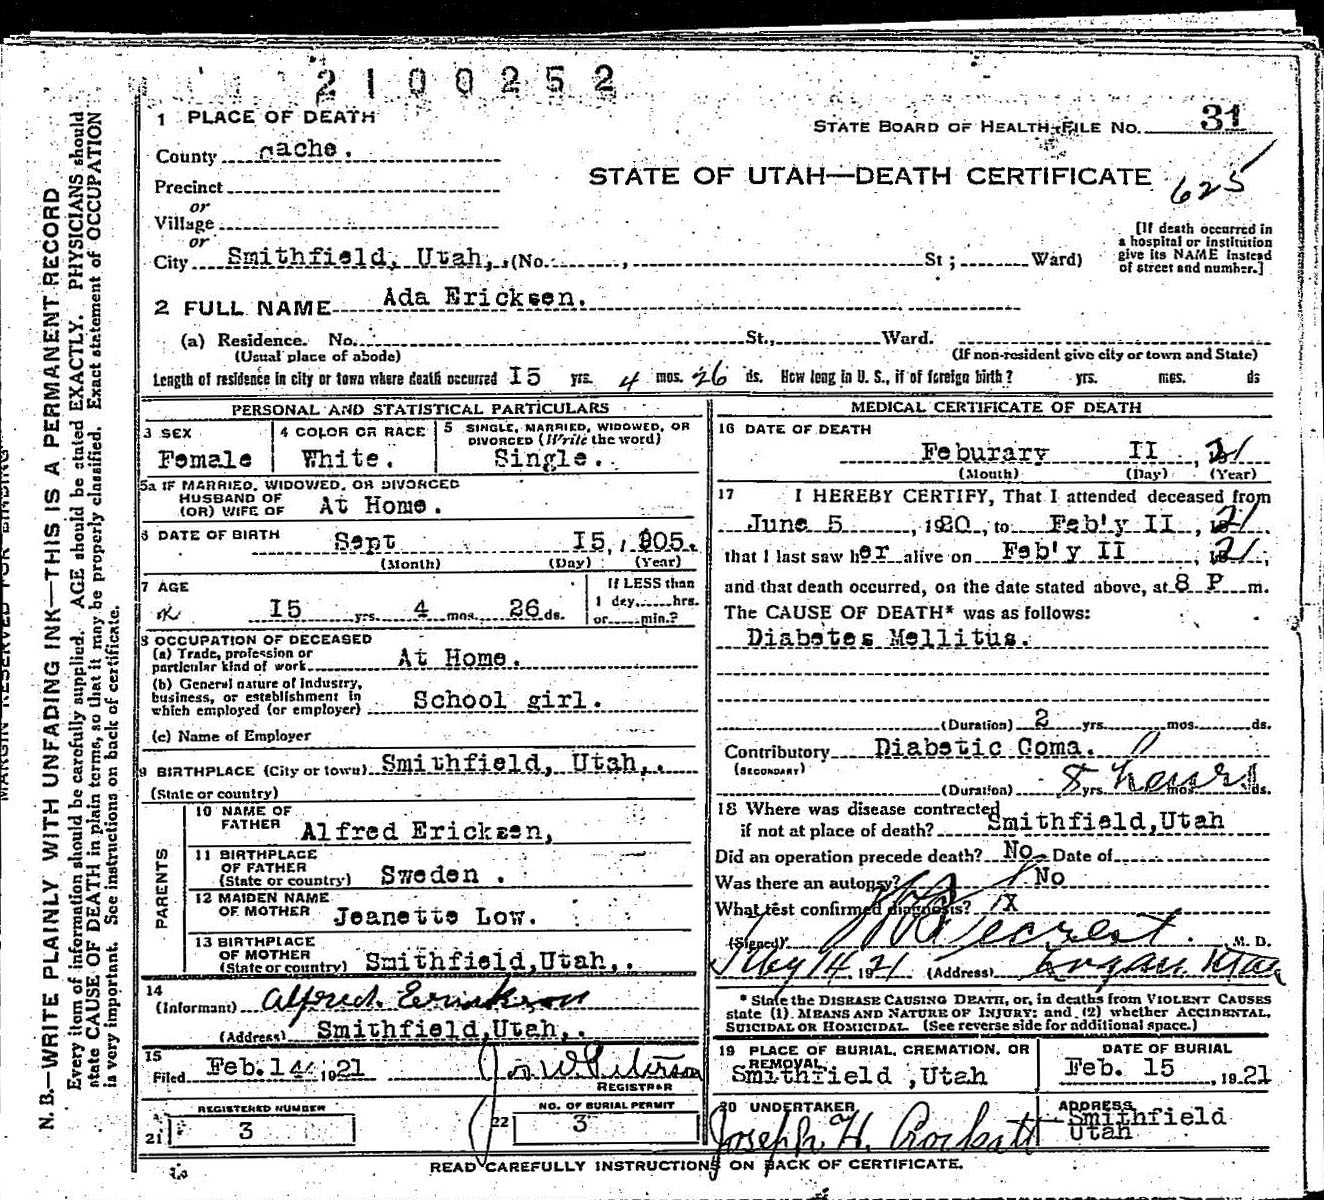 2100252
1 PLACE OF DEATH
STATE BOARD OF HEALTH-FILE NO. 31
County cache.
STATE OF UTAH—DEATH CERTIFICATE
625
Precinct
or
Village
or
City Smithfield, Utah, (No. , St ; Ward)
[If death occurred in
a hospital or institution
give its NAME instead
of street and number.]
2 FULL NAME Ada Ericksen.
(a) Residence. No. St., Ward.
(Usual place of abode) (If non-resident give city or town and State)
Length of residence in city or town where death occurred I5 yrs. 4 mos. 26 ds. How long in U. S., if of foreign birth? yrs. mes. ds
PERSONAL AND STATISTICAL PARTICULARS
3 SEX
Female
4 COLOR OR RACE
White.
5 SINGLE, MARRIED, WIDOWED, OR
DIVORCED (Write the word)
Single.
5a IF MARRIED, WIDOWED, OR DIVORCED
HUSBAND OF
(OR) WIFE OF At Home.
6 DATE OF BIRTH Sept I5, 1905.
(Month) (Day) (Year)
7 AGE
I5 yrs. 4 mos. 26 ds.
If LESS than
1 day,......hrs.
or......min.?
8 OCCUPATION OF DECEASED
(a) Trade, profession or
particular kind of work At Home.
(b) General nature of industry,
business, or establishment in
which employed (or employer) School girl.
(c) Name of Employer
9 BIRTHPLACE (City or town) Smithfield, Utah,.
(State or country)
PARENTS
10 NAME OF
FATHER Alfred Ericksen,
11 BIRTHPLACE
OF FATHER
(State or country) Sweden .
12 MAIDEN NAME
OF MOTHER Jeanette Low.
13 BIRTHPLACE
OF MOTHER
(State or country) Smithfield,Utah,.
14
(Informant) Alfred Erickson
(Address) Smithfield,Utah,.
15
Filed Feb.14 1921 Jos W. Peterson
REGISTRAR
21 REGISTERED NUMBER
3
22 NO. OF BURIAL PERMIT
3
MEDICAL CERTIFICATE OF DEATH
16 DATE OF DEATH
Feburary II , 21
(Month) (Day) (Year)
17 I HEREBY CERTIFY, That I attended deceased from
June 5 , 1920, to Feb'y II , 1921
that I last saw her alive on Feb'y II , 1921,
and that death occurred, on the date stated above, at 8 P m.
The CAUSE OF DEATH* was as follows:
Diabetes Mellitus.
(Duration) 2 yrs. mos. ds.
Contributory Diabetic Coma.
(SECONDARY)
(Duration) 8 yrs. hours mos. ds.
18 Where was disease contracted
if not at place of death? Smithfield,Utah
Did an operation precede death? No Date of
Was there an autopsy? No
What test confirmed diagnosis? X
(Signed) M. D.
Feby 14 1921 (Address) Logan Utah
* State the DISEASE CAUSING DEATH, or, in deaths from VIOLENT CAUSES
state (1) MEANS AND NATURE OF INJURY; and (2) whether ACCIDENTAL,
SUICIDAL OR HOMICIDAL. (See reverse side for additional space.)
19 PLACE OF BURIAL, CREMATION, OR
REMOVAL
Smithfield ,Utah
DATE OF BURIAL
Feb. 15 , 1921
20 UNDERTAKER
Joseph H.
ADDRESS
Smithfield
Utah
READ CAREFULLY INSTRUCTIONS ON BACK OF CERTIFICATE.
MARGIN RESERVED FOR BINDING
N. B.—WRITE PLAINLY WITH UNFADING INK—THIS IS A PERMANENT RECORD
Every item of information should be carefully supplied. AGE should be stated EXACTLY. PHYSICIANS should
state CAUSE OF DEATH in plain terms, so that it may be properly classified. Exact statement of OCCUPATION
is very important. See instructions on back of certificate.